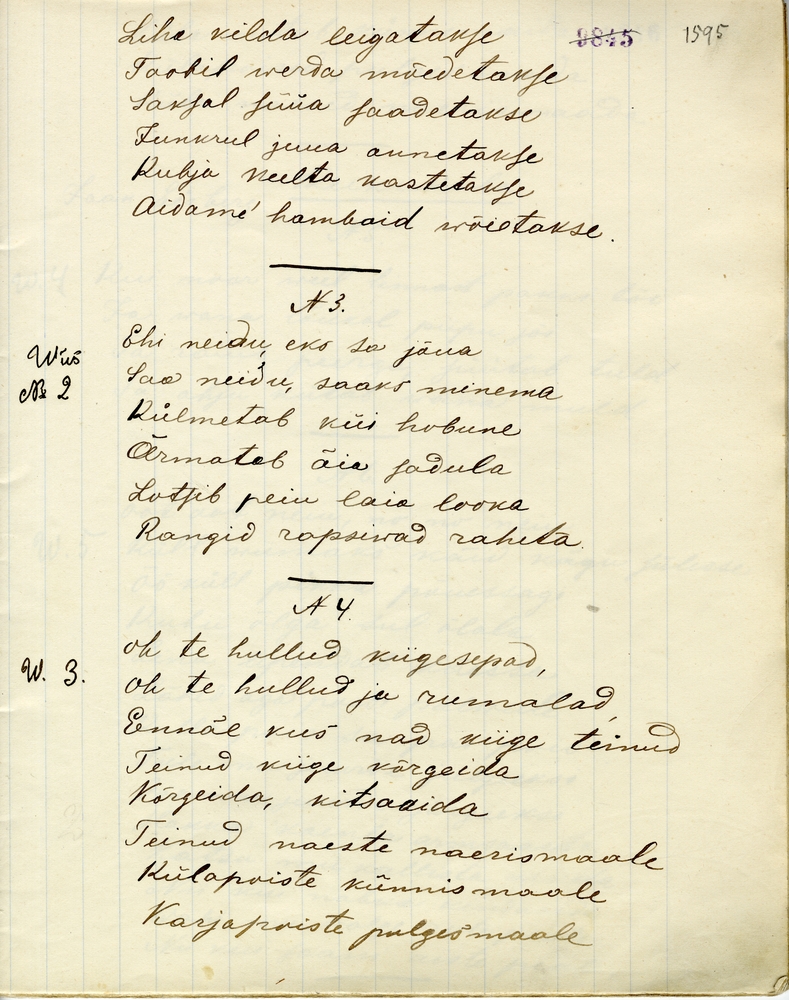 9845 1595
Liha kilda leigatakse
Toobil werda mõedetakse
Saksal süüa saadetakse
Junkrul juua annetakse
Kubja keelta kastetakse
Aidame' hambaid wõietakse.
N 3.
Wiis
№ 2
Ehi neidu, eks sa jõua
Saa neidu, saaks minema
Külmetab küi hobune
Ärmatab äia sadula
Lotsib peiu laia looka
Rangid rapsiwad raheta.
N 4.
W. 3.
Oh te hullud kiigesepad,
Oh te hullud ja rumalad,
Ennäe kus nad kiige teinud
Teinud kiige kõrgeida
Kõrgeida, kitsaaida
Teinud naeste naerismaale
Külapoiste künnismaale
Karjapoiste pulgesmaale